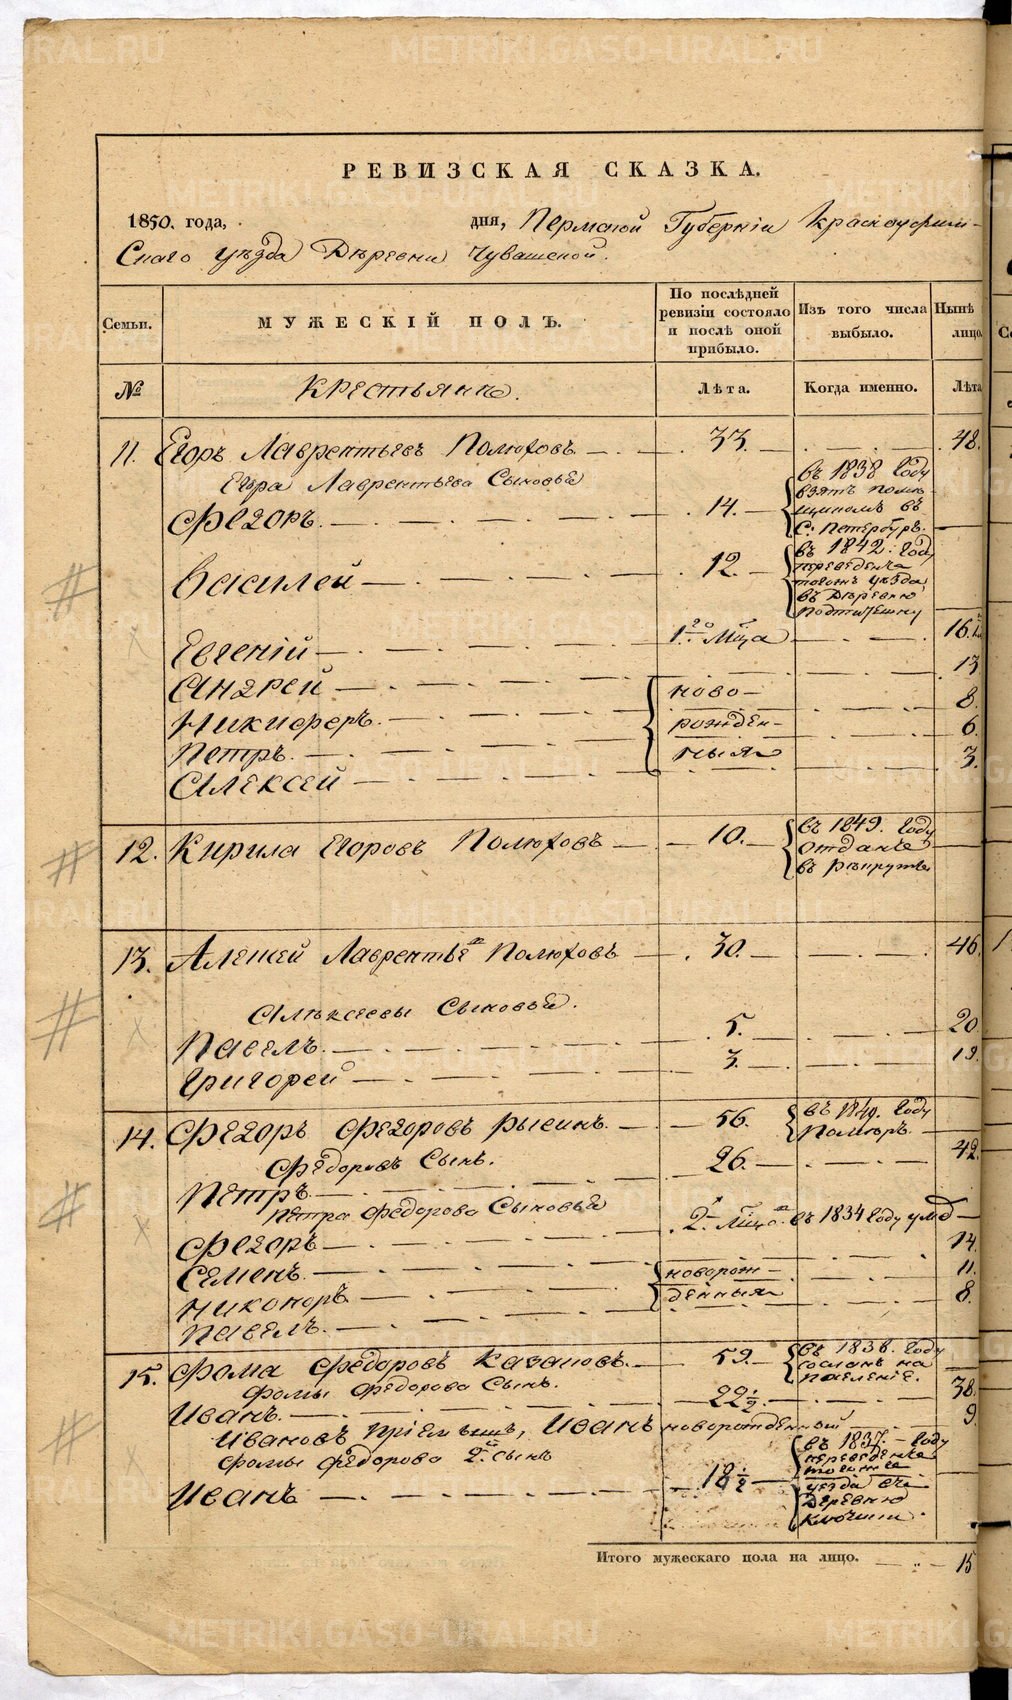 METRIKI.GASO-URAL.RU
РЕВИЗСКАЯ СКАЗКА.
1850. года, дня, Пермской Губерніи Красноуфим-
Скаго уѣзда Дѣревни Чувашской.
Семьи.
МУЖЕСКІЙ ПОЛЪ.
По послѣдней ревизіи состояло и послѣ оной прибыло.
Изъ того числа выбыло.
Нынѣ лицо.
№
Крестьянъ.
Лѣта.
Когда именно.
Лѣта
11. Егоръ Лаврентьевъ Полюховъ 33. 48.
Егора Лаврентьева Сыновья
Федоръ. 14. въ 1838 Году
взятъ помѣ-
щикомъ въ
С. Петербургъ.
Василей 12. въ 1842. Году
переведенъ
тогожъ уѣзда
въ Дѣревню
Евгеній 1. Мца 16.
Андрей 13
Никифоръ. ново- 8.
Петръ. рожден- 6.
Алексей ныя 3.
12. Кирила Егоровъ Полюховъ 10. въ 1849. Году
отданъ
въ рѣкруты
13. Алексей Лаврентьевъ Полюховъ 30. 46.
Алексеевы Сыновья.
Павелъ. 5. 20
Григорей 3. 19.
14. Федоръ Федоровъ Рысинъ. 56. въ 1849. Году
Помѣръ.
Федоровъ Сынъ.
Петръ. 26. 42.
Петра Федорова Сыновья
Федоръ 2. Мца. въ 1834 Году
Семенъ. 14.
Никоноръ новорож- 11.
Павелъ. денныя 8.
15. Фома Федоровъ Казаковъ. 59. въ 1838. Году
сосланъ на
поселеніе.
Фомы Федорова Сынъ.
Иванъ. 22½. 38.
Ивановъ пріемышъ, Иванъ новорожденный 9.
Фомы Федорова 2й сынъ
Иванъ 18½ въ 1837. Году
переведенъ
тогоже
уезда въ
Деревню
Ключики.
Итого мужескаго пола на лицо. 15